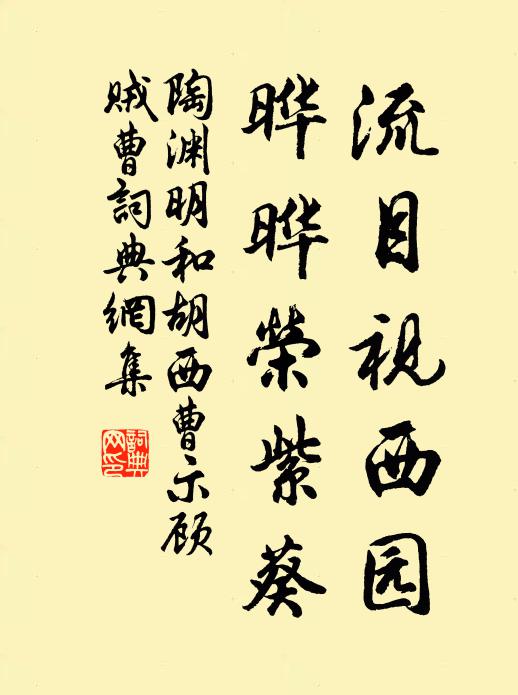 流目视西园
晔晔荣紫葵
陶渊明和胡西曹示顾
贼曹詞典網集
詞典网印